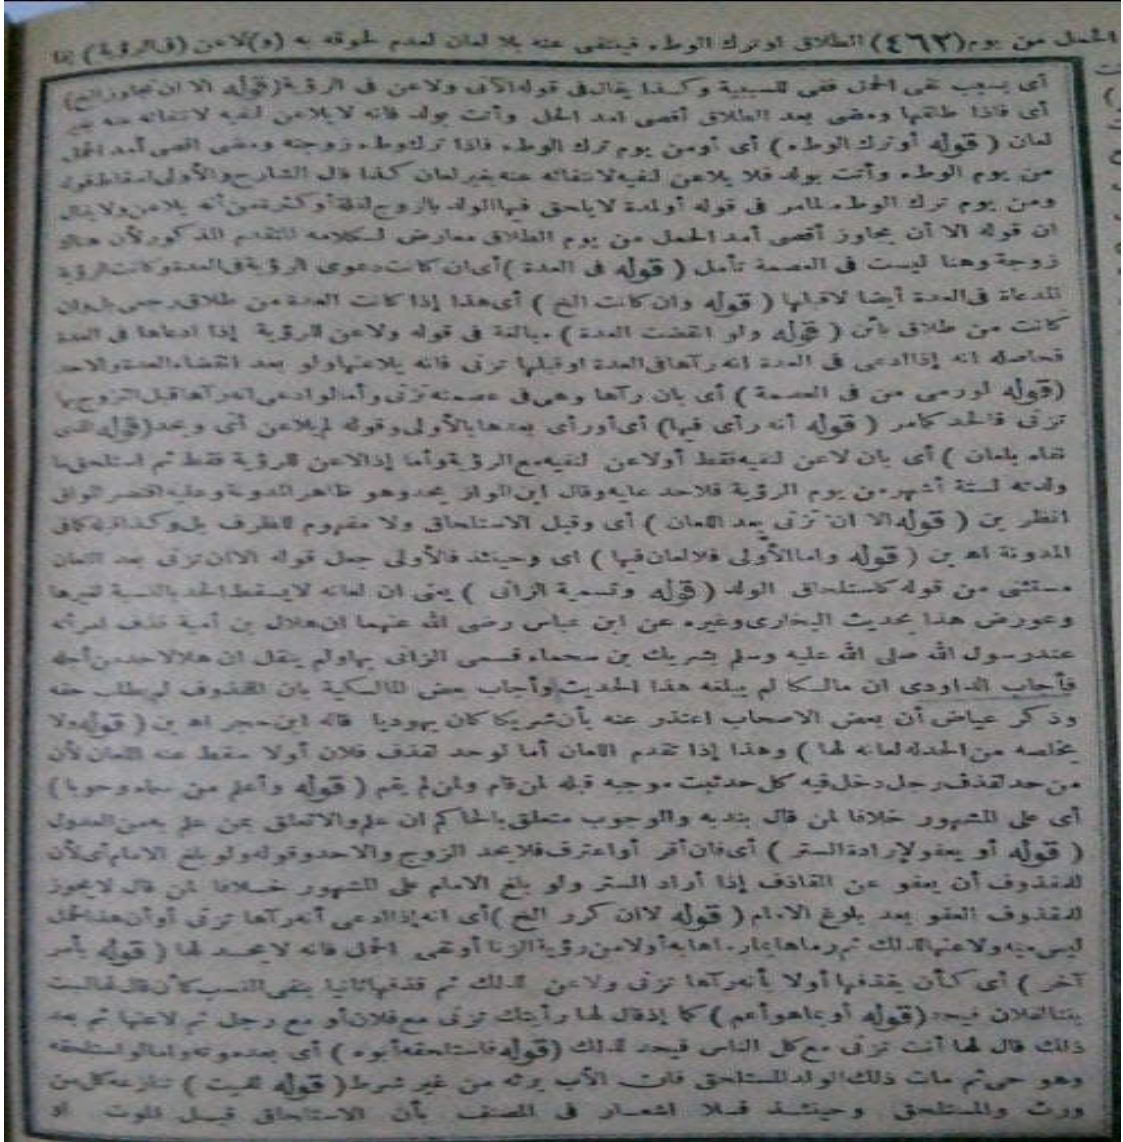 الحمل من يوم (٤٦٣) الطلاق او ترك الوطء فينتفى عنه بلا لعان لعدم لحوقه به (و) لاعن (فى الرؤية) إذا
أى بسبب نفى الحمل ففى للسببية وكذا يقال فى قوله الآتى ولاعن فى الرؤية (قوله الا ان يجاوز الخ)
أى فاذا طلقها ومضى بعد الطلاق أقصى امد الحمل وأتت بولد فانه لا يلاعن لنفيه لانتفائه عنه بغير
لعان (قوله أو ترك الوطء) أى أو من يوم ترك الوطء فاذا ترك وطء زوجته ومضى اقصى أمد الحمل
من يوم الوطء وأتت بولد فلا يلاعن لنفيه لانتفائه عنه بغير لعان كذا قال الشارح والأولى اسقاط قوله
ومن يوم ترك الوطء لما مر فى قوله أو لمدة لا يلحق فيها الولد بالزوج لقلة أو كثرة من أنه يلاعن ولا يقال
ان قوله الا أن يجاوز أقصى أمد الحمل من يوم الطلاق معارض لكلامه المتقدم المذكور لأن هناك
زوجة وهنا ليست فى العصمة تأمل (قوله فى العدة) أى ان كانت دعوى الرؤية فى العدة وكانت الرؤية
المدعاة فى العدة أيضا لا قبلها (قوله وان كانت الخ) أى هذا إذا كانت العدة من طلاق رجعى بل وان
كانت من طلاق بائن (قوله ولو انقضت العدة) مبالغة فى قوله ولاعن للرؤية إذا ادعاها فى العدة
فحاصله انه إذا ادعى فى العدة انه رآها فى العدة او قبلها تزنى فانه يلاعنها ولو بعد انقضاء العدة والا حد
(قوله لو رمى من فى العصمة) أى بان رآها وهى فى عصمته تزنى وأما لو ادعى انه رآها قبل التزوج بها
تزنى فالحد كما مر (قوله أنه رأى فيها) أى أو رأى بعدها بالأولى وقوله لم يلاعن أى ويحد (قوله الذى
نفاه بلعان) أى بان لاعن لنفيه فقط أو لاعن لنفيه مع الرؤية وأما إذا لاعن للرؤية فقط ثم استلحق ما
ولدته لستة أشهر من يوم الرؤية فلا حد عليه وقال ابن المواز يحد وهو ظاهر المدونة وعليه اقتصر المواق
انظر بن (قوله الا ان تزنى بعد اللعان) أى وقبل الاستلحاق ولا مفهوم للظرف بل وكذا قبله كما فى
المدونة اهـ بن (قوله واما الأولى فلا لعان فيها) اى وحينئذ فالأولى جعل قوله الا ان تزنى بعد اللعان
مستثنى من قوله كاستلحاق الولد (قوله وتسمية الزانى) يعنى ان لعانه لا يسقط الحد بالنسبة لغيرها
وعورض هذا بحديث البخارى وغيره عن ابن عباس رضى الله عنهما ان هلال بن أمية قذف امرأته
عند رسول الله صلى الله عليه وسلم بشريك بن سحماء فسمى الزانى بها ولم ينقل ان هلالا حد من أجله
فأجاب الداودى ان مالكا لم يبلغه هذا الحديث وأجاب بعض المالكية بان المقذوف لم يطلب حقه
وذكر عياض أن بعض الاصحاب اعتذر عنه بأن شريكا كان يهوديا قاله ابن حجر اهـ بن (قوله ولا
يخلصه من الحد له لعانه لها) وهذا إذا تقدم اللعان أما لو حد لقذف فلان أولا سقط عنه اللعان لأن
من حد لقذف رجل دخل فيه كل حد ثبت موجبه قبله لمن قام ولمن لم يقم (قوله وأعلم من سماه وجوبا)
أى على المشهور خلافا لمن قال بندبه والوجوب متعلق بالحاكم ان علم والا تعلق بمن علم به من العدول
(قوله أو يعفو لإرادة الستر) أى فان أقر أو اعترف فلا يحد الزوج والا حد وقوله ولو بلغ الامام أى لأن
للمقذوف أن يعفو عن القاذف إذا أراد الستر ولو بلغ الامام على المشهور خلافا لمن قال لا يجوز
للمقذوف العفو بعد بلوغ الامام (قوله لا ان كرر الخ) أى انه إذا ادعى أنه رآها تزنى أو أن هذا الحمل
ليس منه ولاعنها لذلك ثم رماها بما رماها به أولا من رؤية الزنا أو نفى الحمل فانه لا يحد لها (قوله بأمر
آخر) أى كأن يقذفها أولا بأنه رآها تزنى ولاعن لذلك ثم قذفها ثانيا بنفى النسب كأن قال لها لست
بنتا لفلان فيحد (قوله أو بما هو أعم) كما إذا قال لها رأيتك تزنى مع فلان أو مع رجل ثم لاعنها ثم بعد
ذلك قال لها أنت تزنى مع كل الناس فيحد لذلك (قوله فاستلحقه أبوه) أى بعد موته وأما لو استلحقه
وهو حى ثم مات ذلك الولد المستلحق فان الأب يرثه من غير شرط (قوله للميت) تنازعه كل من
ورث والمستلحق وحينئذ فلا اشعار فى المصنف بأن الاستلحاق قبل الموت او